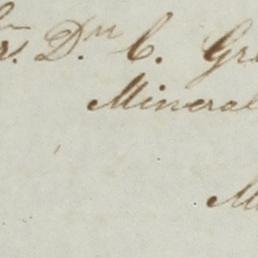 Dr. C. Gre
Mineral
M